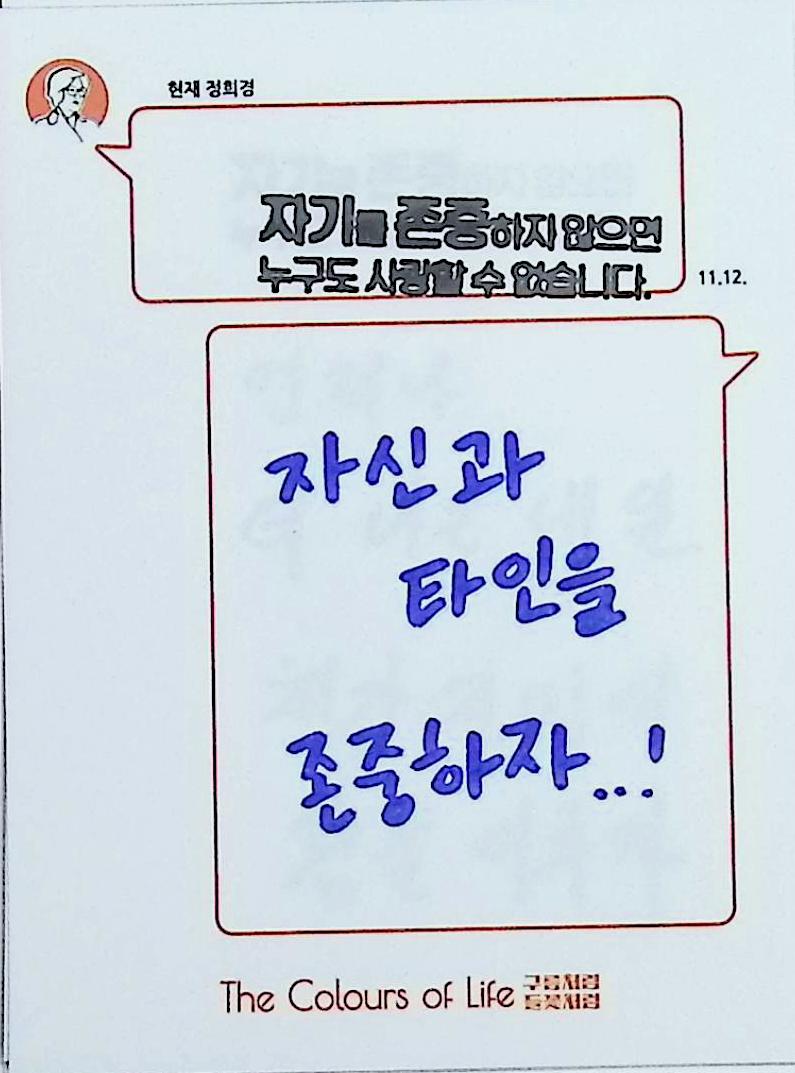 현재 정희경
자기를 존중하지 않으면
누구도 사랑할 수 없습니다.
11.12.
자신과
타인을
존중하자...!
The Colours of Life 구름처럼
들꽃처럼